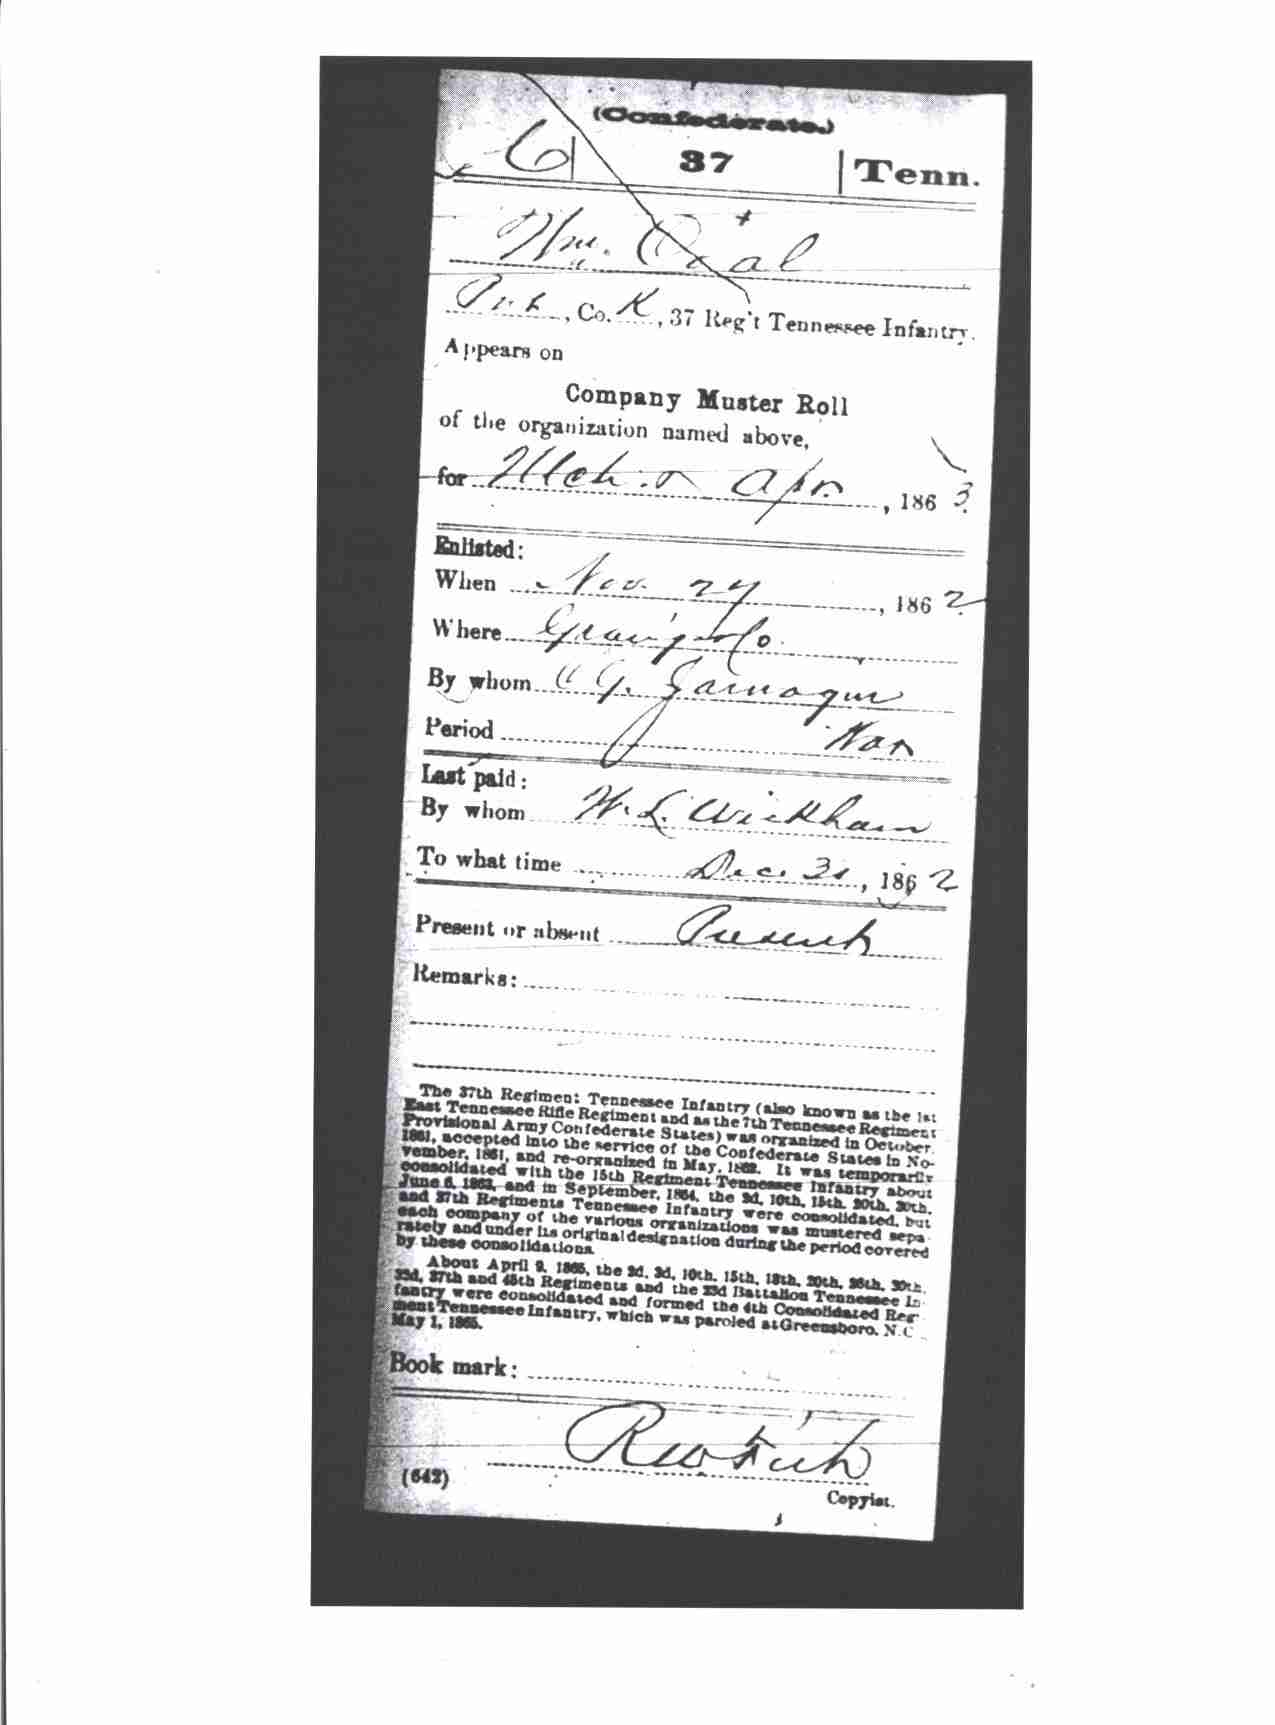 (Confederate.)
C | 37 | Tenn.
Wm. Oal
Pvt, Co. K, 37 Reg't Tennessee Infantry.
Appears on
Company Muster Roll
of the organization named above,
for Mch & Apr, 1863.
Enlisted:
When Nov. 24, 1862.
Where Grainger Co.
By whom G. Jarnagin
Period War
Last paid:
By whom W. L. Wickham
To what time Dec. 31, 1862
Present or absent Present
Remarks:
The 37th Regiment Tennessee Infantry (also known as the 1st
East Tennessee Rifle Regiment and as the 7th Tennessee Regiment
Provisional Army Confederate States) was organized in October,
1861, accepted into the service of the Confederate States in No-
vember, 1861, and re-organized in May, 1862. It was temporarily
consolidated with the 15th Regiment Tennessee Infantry about
June 6, 1863, and in September, 1864, the 2d, 10th, 15th, 20th, 30th,
and 37th Regiments Tennessee Infantry were consolidated, but
each company of the various organizations was mustered sepa-
rately and under its original designation during the period covered
by these consolidations.
About April 9, 1865, the 2d, 3d, 10th, 15th, 18th, 20th, 26th, 30th,
32d, 37th and 45th Regiments and the 23d Battalion Tennessee In-
fantry were consolidated and formed the 4th Consolidated Regi-
ment Tennessee Infantry, which was paroled at Greensboro, N.C.
May 1, 1865.
Book mark:
(642)
Copyist.